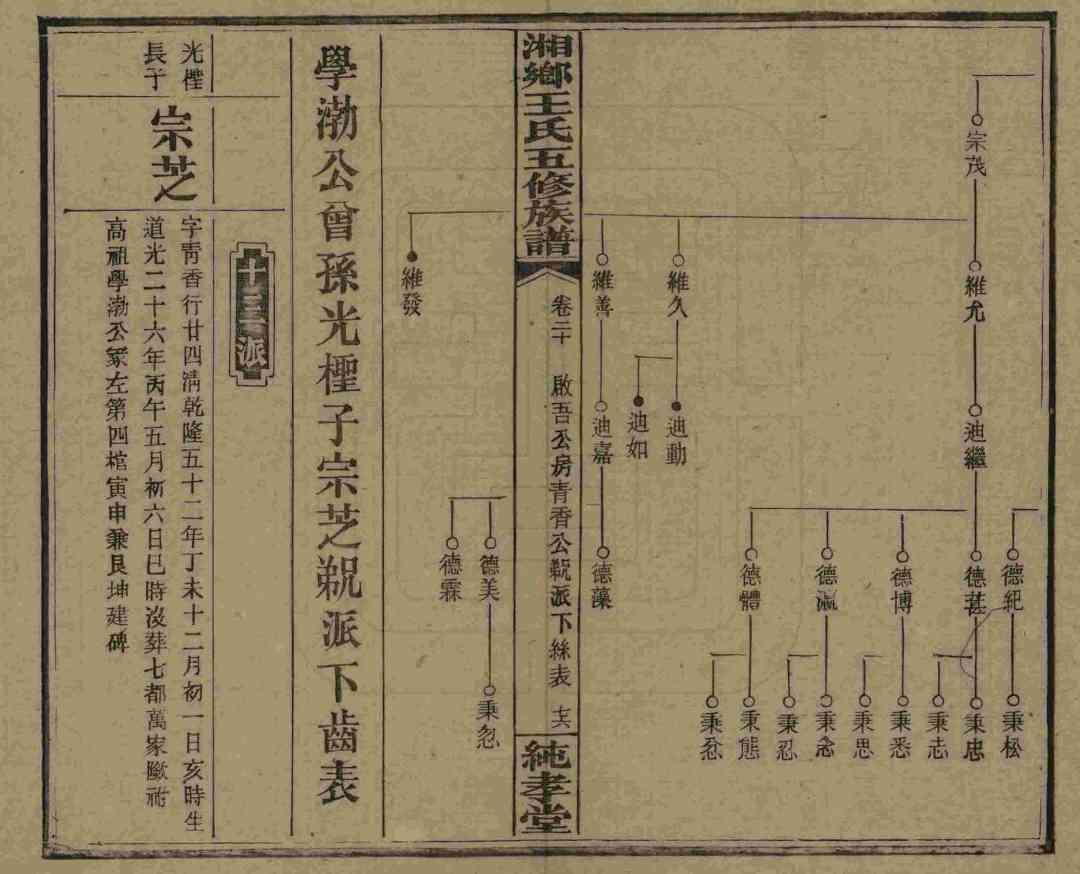 宗茂
維允
迪繼
德紀
德甚
德博
德瀛
德體
秉松
秉忠
秉志
秉悉
秉思
秉念
秉忍
秉態
秉忿
維久
迪動
迪如
維善
迪嘉
德藻
湘鄉王氏五修族譜
卷二十
啟吾公房青香公覜派下絲表
純孝堂
維發
德美
德霖
秉忽
學渤公曾孫光㮚子宗芝覜派下齒表
十三派
光
長子
宗芝
字靑香行廿四淸乾隆五十二年丁未十二月初一日亥時生
道光二十六年丙午五月初六日巳時沒葬七都萬家
高祖學渤公冢左第四棺寅申兼艮坤建碑